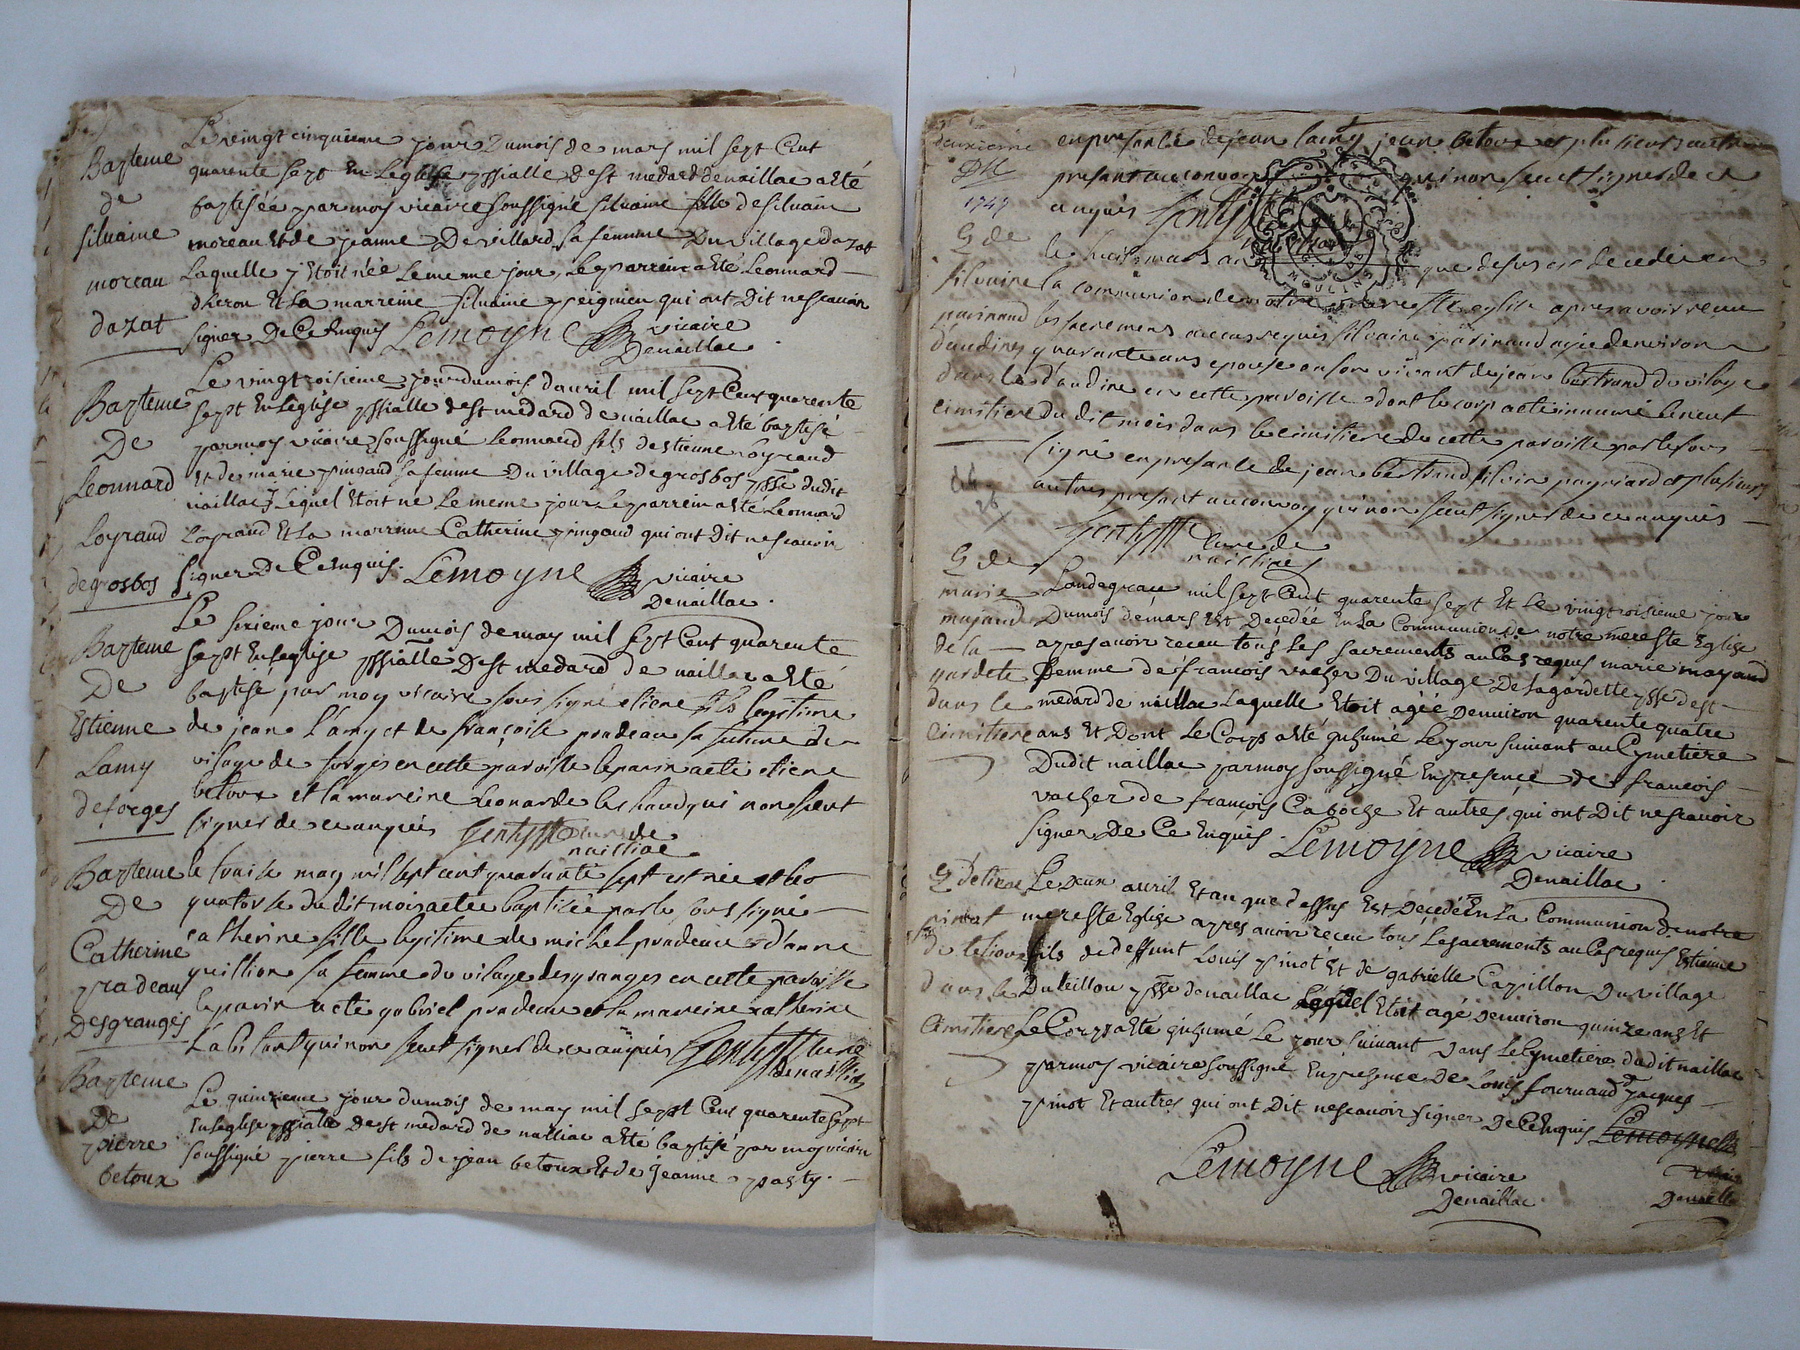 Bapteme
de
silvaine
moreau
dazat
Le vingt cinquieme jour Dumois de mars mil sept Cent
quarente sept En Leglise pssialle dest medard denaillac a Eté
baptiséé par moy vicaire soussigné silvaine fille de silvain
moreau Et de jeanne Devillard sa femme Du village dazat
Laquelle Etoit née Le meme jour Le parrein a Eté Leonnard
Et La marreine silvaine peignieu qui ont Dit nescavoir
signer De Ce Enquis Lemoyne vicaire
Denaillac
Bapteme
De
Leonnard
Loyraud
degrosbos
Le vingtroisieme jour dumois d'auril mil sept Cent quarente
sept En Leglise pssialle dest medard de naillac a Eté baptisé
par moy vicaire soussigné Leonnard fils destienne Loyraud
Et de marie pingaud sa femme Du village de grosbos psse dudit
naillac Lequel Etoit né Le meme jour Le parrein a Eté Leonnard
Loyraud Et La marreine Catherine pingaud qui ont Dit nescavoir
signer De Ce Enquis. Lemoyne vicaire
Denaillac.
Bapteme
De
Estienne
Lamy
deforges
Le sixieme jour Dumois de may mil sept Cent quarente
sept En Leglise pssialle Dest medard de naillac a Eté
baptisé par moy vicaire sous signé etiene fils legitime
de jean Lamy et de françoise pradeau sa femme de
vilage de forges en cette paroisse le parin a eté etiene
betoux et la mareine Leonarde qui non sceut
signer de ce anquis curé de
nailliac
Bapteme
De
Catherine
pradeau
Desgranges
le traise may mil sept cent quarante sept est née et le
quatorse du dit mois a etee baptisée par le sous signé
catherine fille legitime de michel pradeau et d'anne
quillion sa femme du vilage des granges en cette paroisse
le parin a ete gabriel pradeau et la mareine catherine
qui non sceut signer de ce anquis curé
denailliac
Bapteme
De
pierre
betoux
Le quinzieme jour dumois de may mil sept Cent quarente sept
En Leglise pssialle Dest medard de nailliac a Eté baptisé par moy vicaire
soussigné pierre fils de jean betoux Et de Jeanne pasty.
deuxieme
1747
en presance de jean lamy jean betoux et plusieurs autre
presant au convoy qui non sceut signer de ce
anquis
MOULINS
E de
silvaine
parinaud
daudine
dans le
cimitiere
le huit mars an que desus est decedée en
la communion de notre mere ste eglise apres avoir receu
les sacremens au cas requis silvaine parinaud agée denviron
quarante ans epouse en son vivant de jean bertrand du vilage
d'audine en cette paroisse dont le corp a eté innumé le neuf
du dit mois dans le cimitiere de cette paroisse par le sous
signé en presance de jean bertrand silvain et plusieurs
autres presant au convoy qui non sceut signer de ce anquis
curé de
nailliac
E de
marie
majaud
de la
gardete
dans le
cimitiere
Landegrace mil sept Cent quarente sept Et Le vingtroisieme jour
Dumois demars Est Decedéé En La Communion de notre mere ste Eglise
apres avoir receu tous Les sacrements au Cas requis marie mayaud
femme de francois vacher Du village De Lagardette psse dest
medard de naillac Laquelle Etoit agéé Denviron quarente quatre
ans Et Dont Le Corps a Eté Le jour suivant au Cymetiere
Dudit naillac par moy soussigné En presence de francois
vacher de françois Caboche Et autres qui ont Dit nescavoir
signer De Ce Enquis. Lemoyne vicaire
Denaillac
E detiene
pinot
dans le
Cimitiere
Le Deux avril Et an que dessus Est Decedé En La Communion Denotre
mere ste Eglise apres avoir receu tous Les sacrements au Cas requis Estienne
fils de deffunt Louis pinot Et de gabrielle Capillon Du village
psse denaillac Lequel Etoit agé denviron quinze ans Et
Le Corps a Eté Le jour suivant dans Le Cymetiere dudit naillac
par moy vicaire soussigné En presence De Louis fournaud De jacques
pinot Et autres qui ont Dit nescavoir signer De Ce Enquis Lemoyne
Lemoyne vicaire
Denaillac.
Denaillac